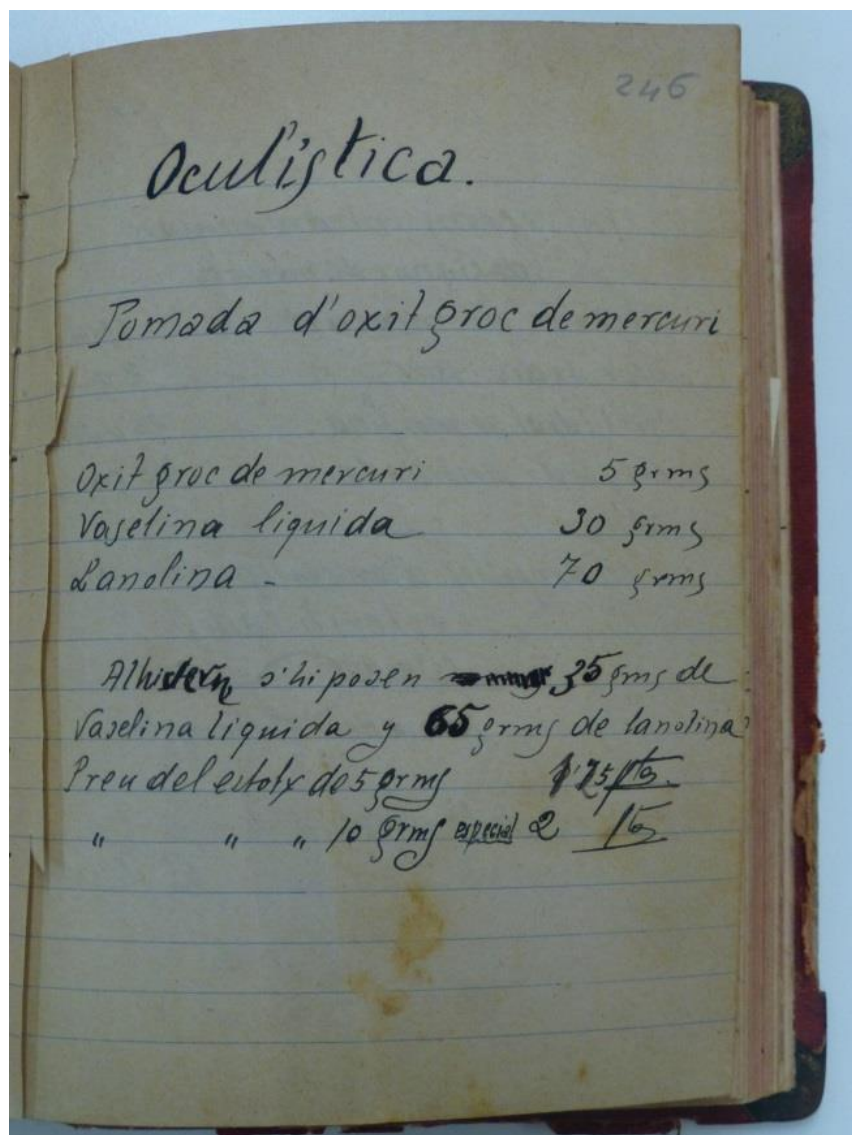 246
Oculística.
Pomada d'oxit groc de mercuri
Oxit groc de mercuri 5 grms
Vaselina liquida 30 grms
Lanolina - 70 grms
Al hivern s'hi posen 35 gms de
Vaselina liquida y 65 grms de lanolina
Preu del estotx de 5 grms 1'25 Ptas.
" " " 10 grms especial 2 Ptas